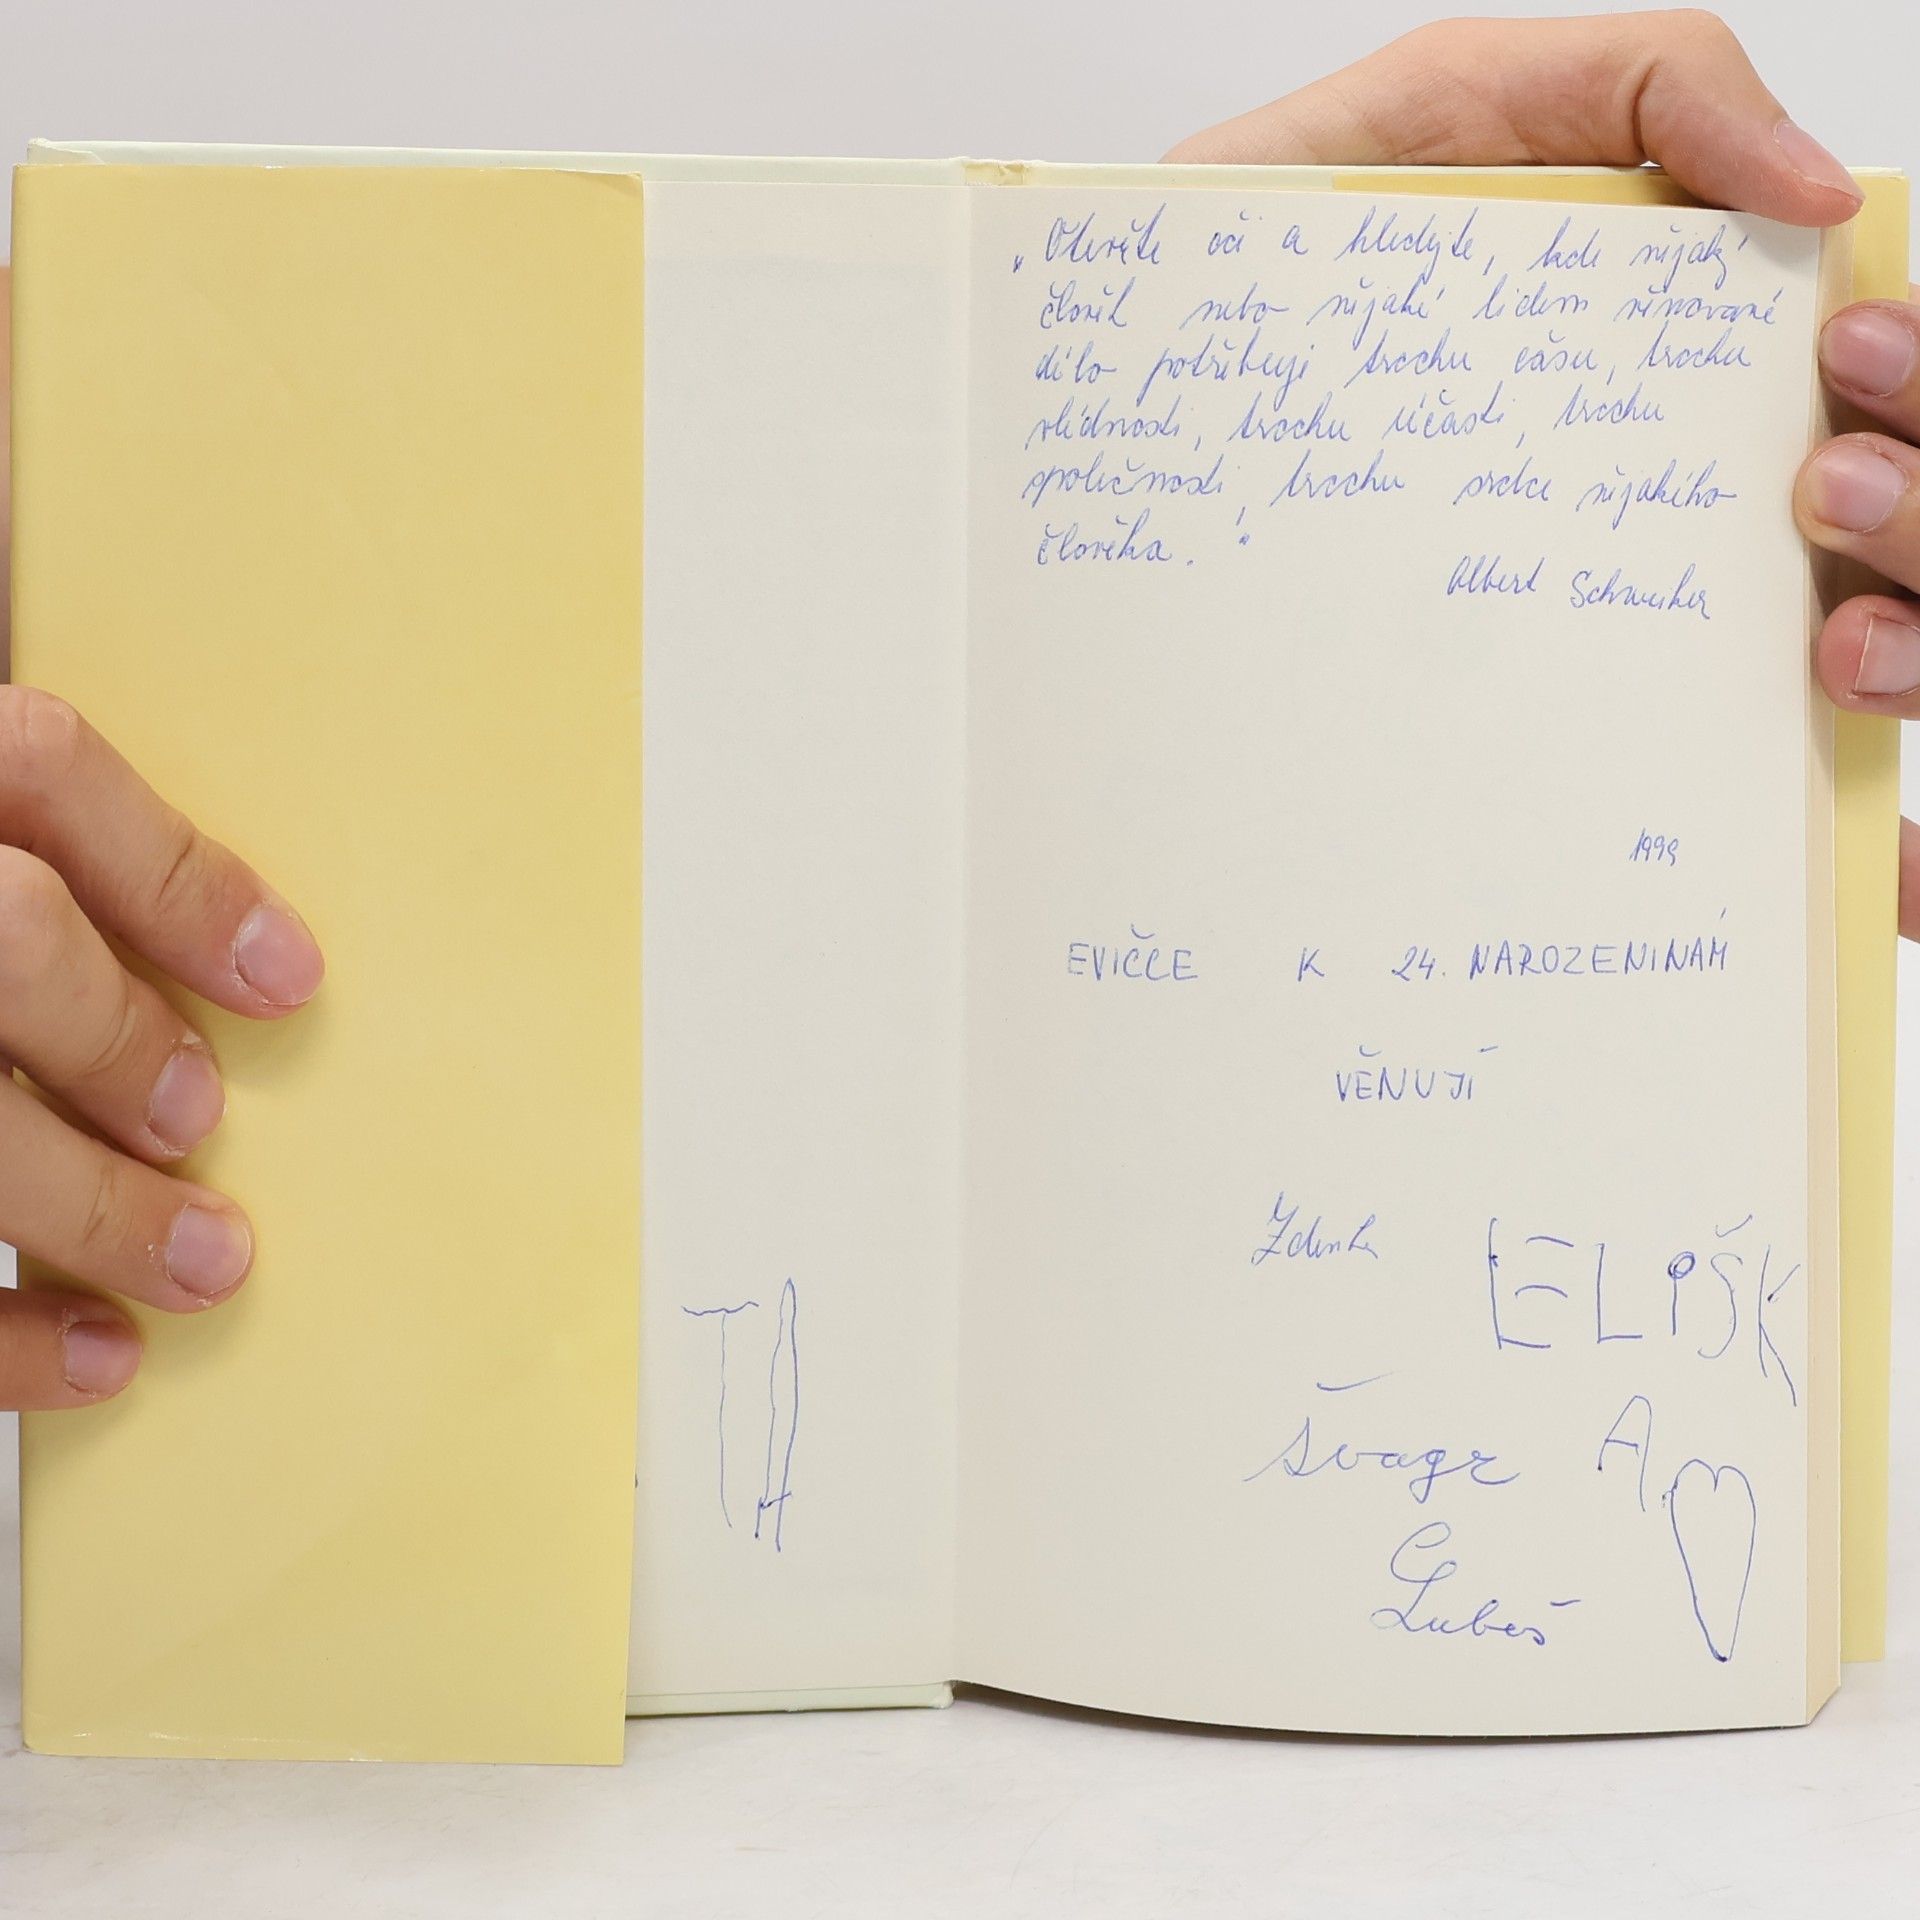 „Otevřte oči a hledejte, kde nějaký
člověk nebo nějaké lidem věnované
dílo potřebují trochu času, trochu
vlídnosti, trochu účasti, trochu
společnosti, trochu srdce nějakého
člověka."
Albert Schweitzer
1999
EVIČCE K 24. NAROZENINÁM
VĚNUJÍ
Zdenka
ELIŠK
A
švagr
Luboš